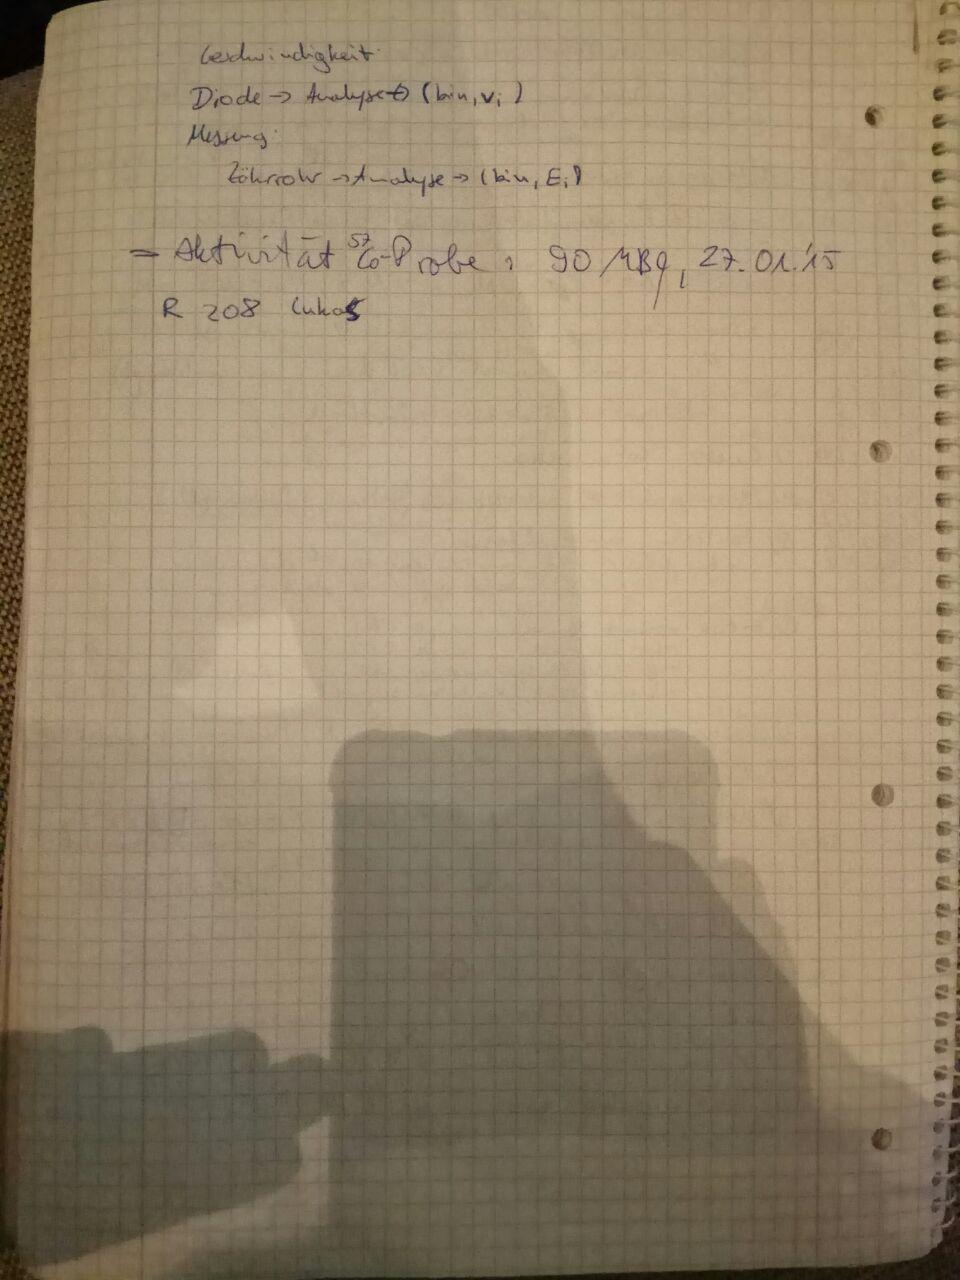 Geschwindigkeit:
Diode → Analyse → (bin, vᵢ)
Messung:
Zählrohr → Analyse → (bin, Eᵢ)
= Aktivität ⁵⁷Co-Probe: 90 MBq, 27.01.'15
R 208 Lukas